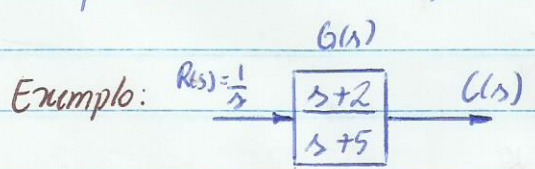 G(s)
Exemplo: R(s)=1/s
s+2
s+5
C(s)